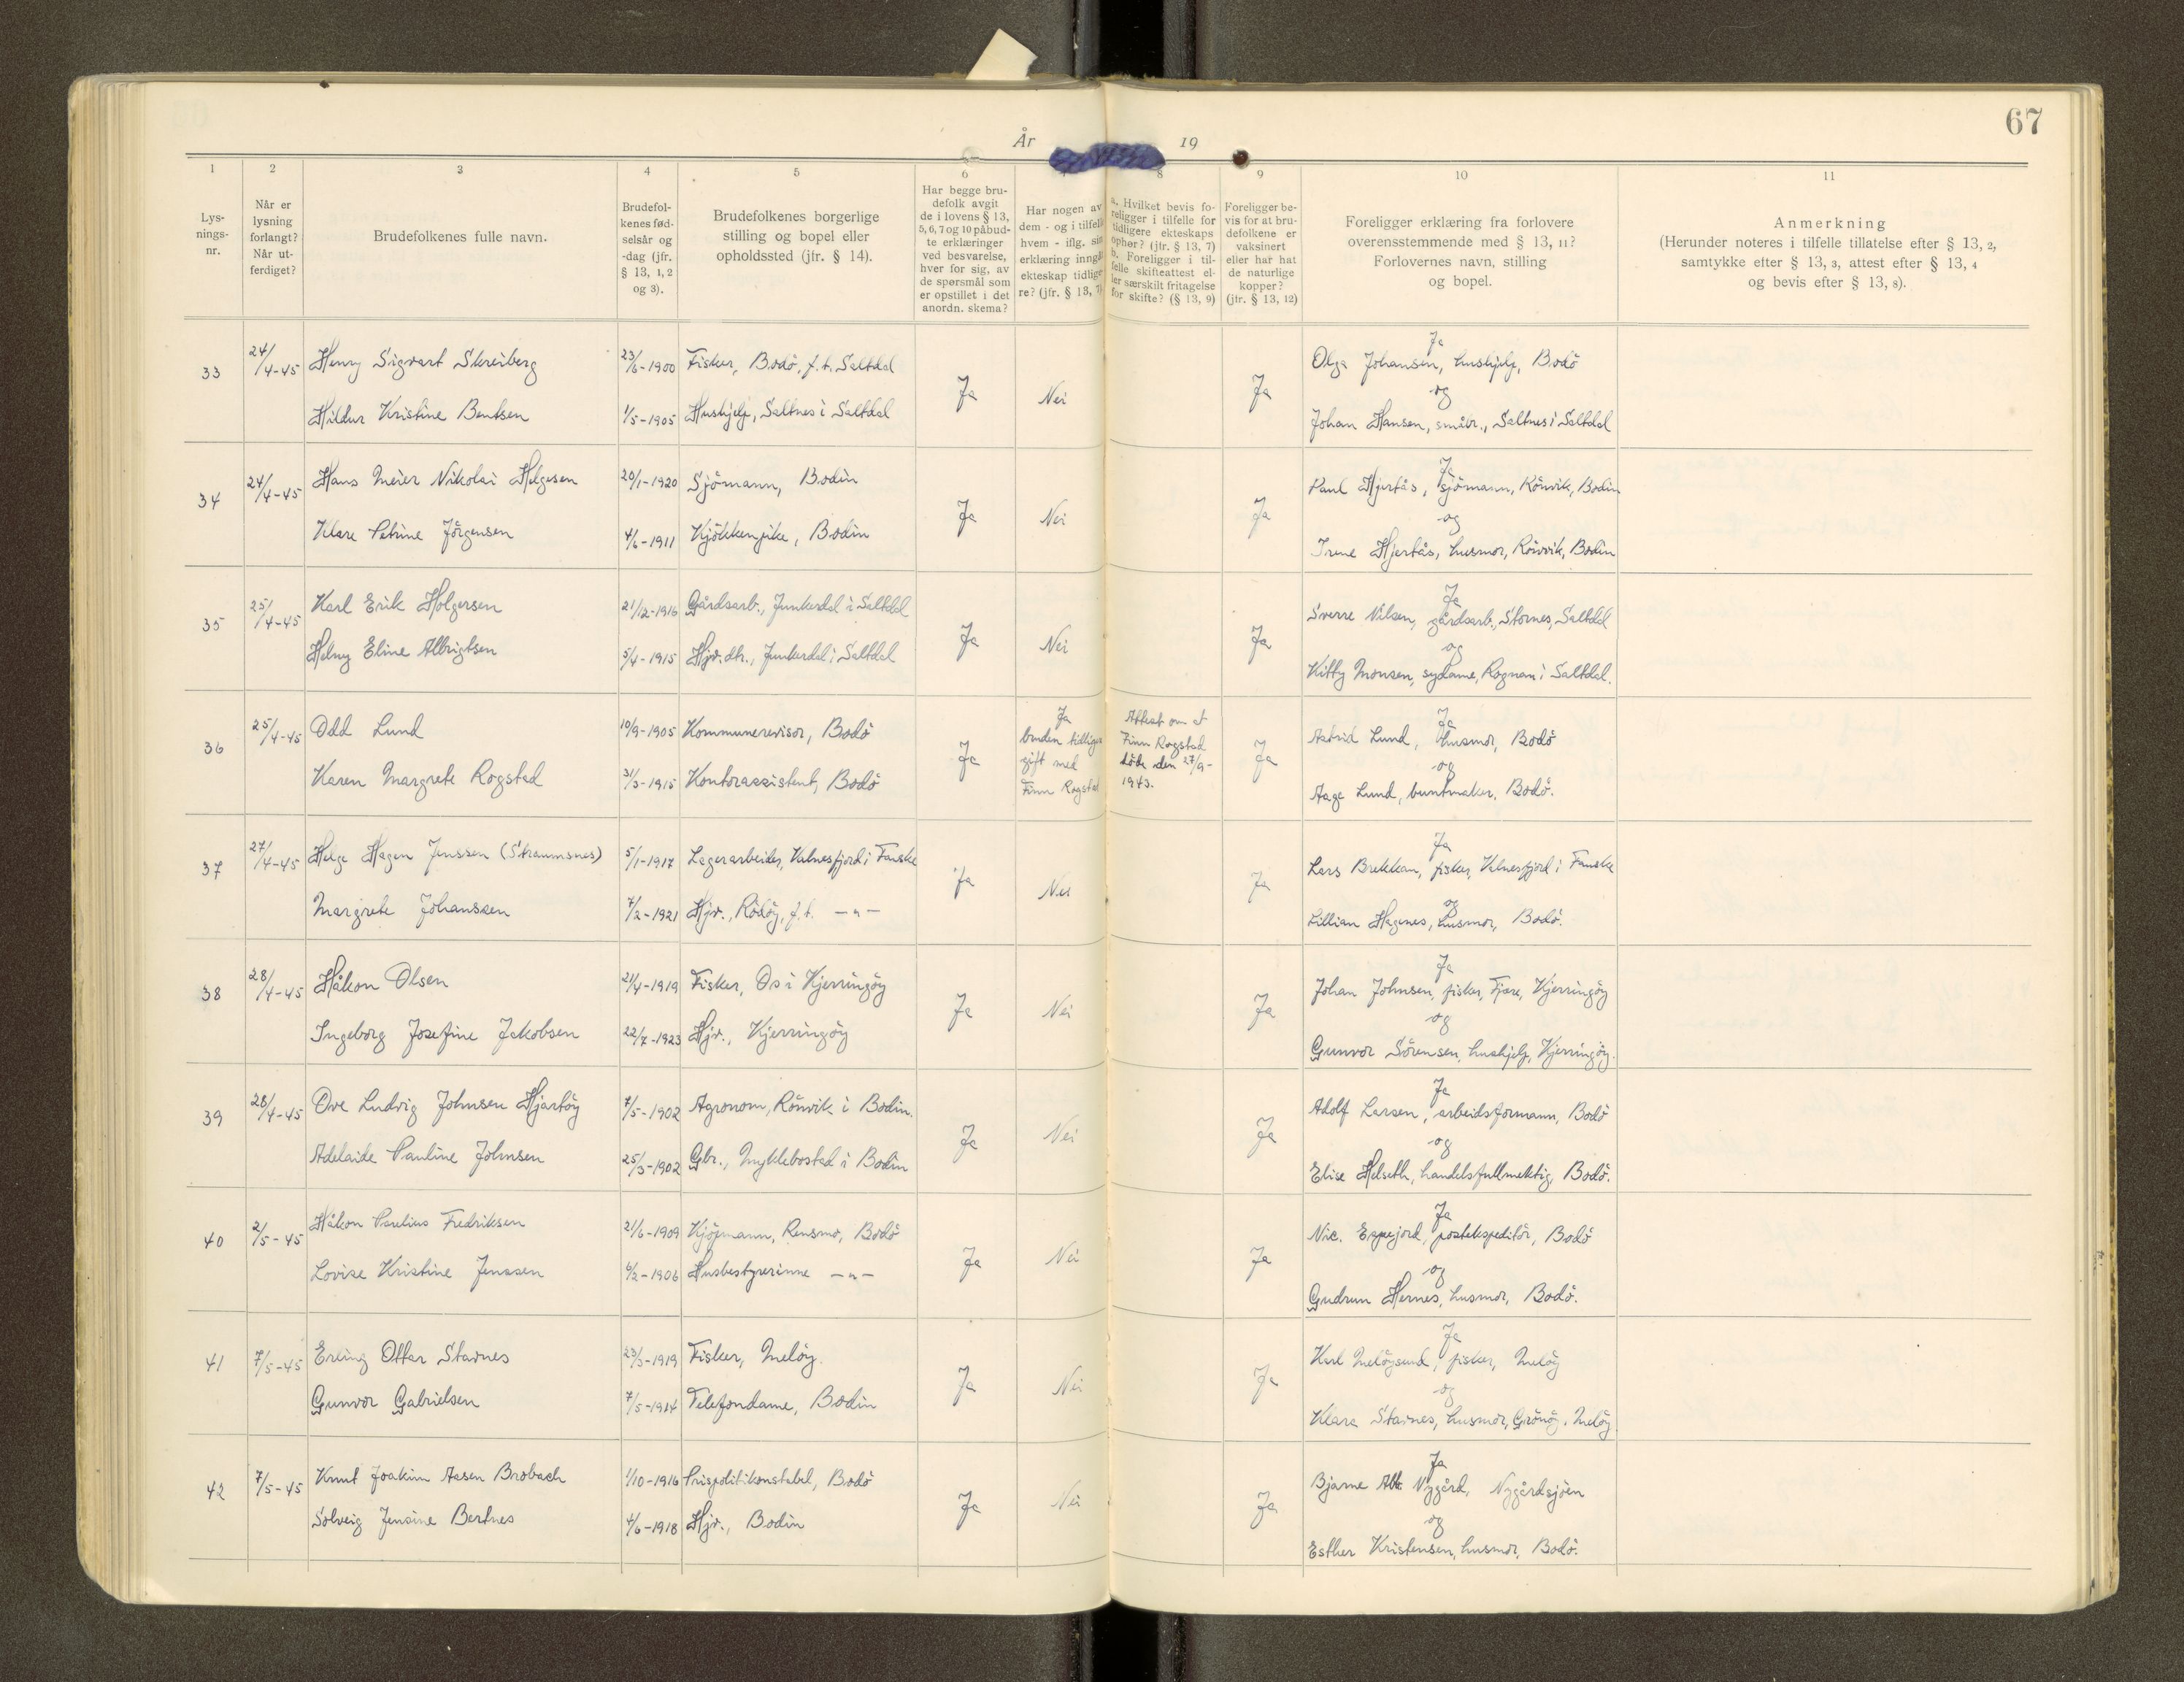 67
År 19
1 2 3 4 5 6 8 9 10 11
Lys-
nings-
nr.
Når er
lysning
forlangt?
Når ut-
ferdiget?
Brudefolkenes fulle navn.
Brudefol-
kenes fød-
selsår og
-dag (jfr.
§ 13, 1, 2
og 3).
Brudefolkenes borgerlige
stilling og bopel eller
opholdssted (jfr. § 14).
Har begge bru-
defolk avgit
de i lovens § 13,
5, 6, 7 og 10 påbud-
te erklæringer
ved besvarelse,
hver for sig, av
de spørsmål som
er opstillet i det
anordn. skema?
Har nogen av
dem - og i tilfelle
hvem - iflg. sin
erklæring inngåt
ekteskap tidlige-
re? (jfr. § 13, 7)
a. Hvilket bevis fo-
religger i tilfelle for
tidligere ekteskaps
ophør? (jfr. § 13, 7)
b. Foreligger i til-
felle skifteattest el-
ler særskilt fritagelse
for skifte? (§ 13, 9)
Foreligger be-
vis for at bru-
defolkene er
vaksinert
eller har hat
de naturlige
kopper?
(jfr. § 13, 12)
Foreligger erklæring fra forlovere
overensstemmende med § 13, 11?
Forlovernes navn, stilling
og bopel.
Anmerkning
(Herunder noteres i tilfelle tillatelse efter § 13, 2,
samtykke efter § 13, 3, attest efter § 13, 4
og bevis efter § 13, 8).
33 24/4-45 Henry Sigvart Skreiberg 23/6-1900 Fisker, Bodö, f.t. Saltdal
Hildur Kristine Bentsen 1/5-1905 Hushjelp, Saltnes i Saltdal
Ja Nei Ja
Ja
Olga Johansen, hushjelp, Bodö
og
Johan Hansen, småbr., Saltnes i Saltdal
34 24/4-45 Hans Meier Nikolai Helgesen 20/1-1920 Sjömann, Bodin
Klara Petrine Jörgensen 4/6-1911 Kjökkenpike, Bodin
Ja Nei Ja
Ja
Paul Hjertås, sjömann, Rönvik, Bodin
og
Irene Hjertås, husmor, Rönvik, Bodin
35 25/4-45 Karl Erik Holgersen 21/12-1916 Gårdsarb., Junkerdal i Saltdal
Helmy Eline Albrigtsen 5/4-1915 Hjv. dtr., Junkerdal i Saltdal
Ja Nei Ja
Ja
Sverre Nilsen, gårdsarb., Stornes, Saltdal
og
Kitty Monsen, sydame, Rognan i Saltdal.
36 25/4-45 Odd Lund 10/9-1905 Kommunerevisor, Bodö
Karen Margrete Rogstad 31/3-1915 Kontorassistent, Bodö
Ja
Ja
bruden tidligere
gift med
Finn Rogstad
Attest om at
Finn Rogstad
döde den 27/9-
1943.
Ja
Ja
Astrid Lund, husmor, Bodö
og
Aage Lund, buntmaker, Bodö.
37 27/4-45 Helge Hagen Jenssen (Straumsnes) 5/1-1917 Lagerarbeider, Valnesfjord i Fauske
Margrete Johanssen 7/2-1921 Hjv., Rödöy, f.t. —"—
Ja Nei Ja
Ja
Lars Brekkan, fisker, Valnesfjord i Fauske
og
Lillian Hagenes, husmor, Bodö.
38 28/4-45 Håkon Olsen 21/4-1919 Fisker, Os i Kjerringöy
Ingeborg Josefine Jakobsen 22/7-1923 Hjv., Kjerringöy
Ja Nei Ja
Ja
Johan Johnsen, fisker, Fjære, Kjerringöy
og
Gunvor Sörensen, hushjelp, Kjerringöy.
39 28/4-45 Ove Ludvig Johnsen Hjartöy 7/5-1902 Agronom, Rönvik i Bodin.
Adelaide Pauline Johnsen 25/3-1902 Gbr., Myklebostad i Bodin
Ja Nei Ja
Ja
Adolf Larsen, arbeidsformann, Bodö
og
Elise Helseth, handelsfullmektig, Bodö.
40 2/5-45 Håkon Paulius Fredriksen 21/6-1909 Kjöpmann, Rensmo, Bodö
Lovise Kristine Jenssen 6/2-1906 Husbestyrerinne —"—
Ja Nei Ja
Ja
Nic. Espejord, postekspeditör, Bodö
og
Gudrun Hernes, husmor, Bodö.
41 7/5-45 Erling Ottar Stavnes 23/3-1919 Fisker, Melöy
Gunvor Gabrielsen 7/5-1914 Telefondame, Bodin
Ja Nei Ja
Ja
Karl Melöysund, fisker, Melöy
og
Klara Stavnes, husmor, Grönöy, Melöy
42 7/5-45 Knut Joakim Aasen Brobach 1/10-1916 Prispolitikonstabel, Bodö
Solveig Jensine Bertnes 4/6-1918 Hjv., Bodin
Ja Nei Ja
Ja
Bjarne Alb. Nygård, Nygårdsjöen
og
Esther Kristensen, husmor, Bodö.